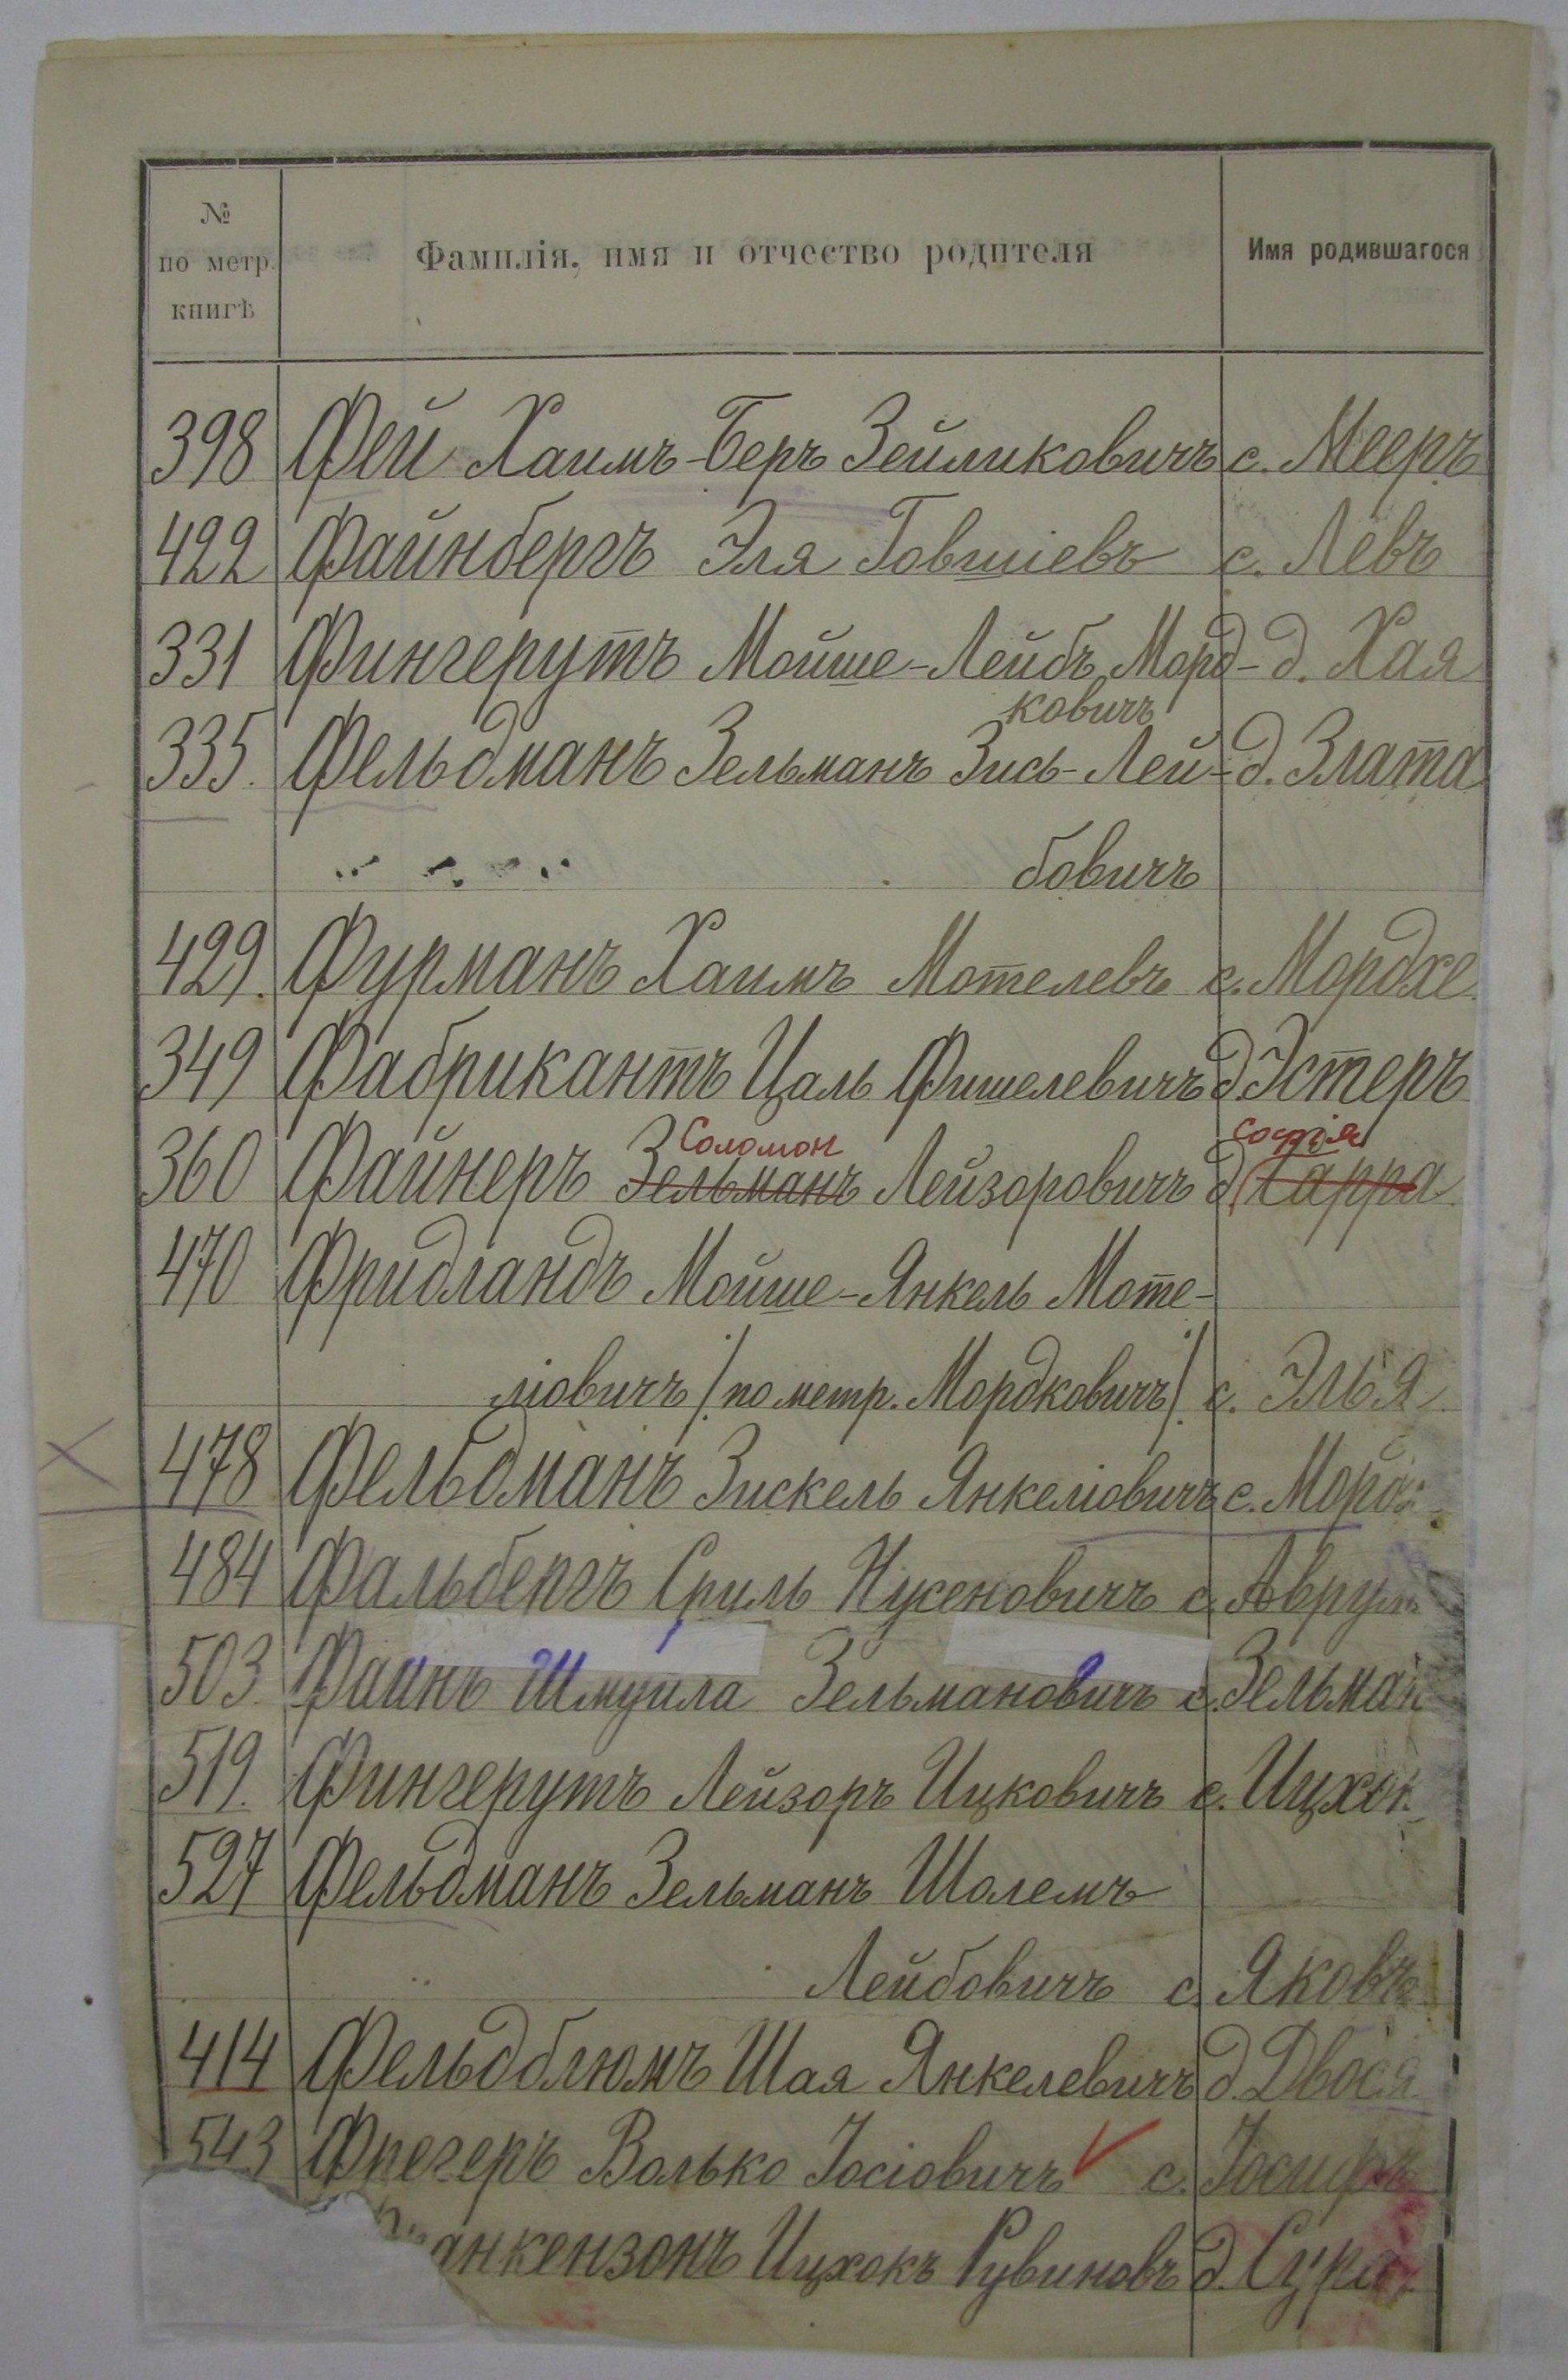 №
по метр.
книгѣ
Фамилія, имя и отчество родителя
Имя родившагося
398 Фей Хаимъ-Беръ Зейликовичъ с. Мееръ
422 Файнбергъ Эля Говшіевъ с. Левъ
331 Фингерутъ Мойше-Лейбъ Морд- д. Хая
ковичъ
335. Фельдманъ Зельманъ Зись-Лей- д. Злата
бовичъ
429. Фурманъ Хаимъ Мотелевъ с. Мордхе
349 Фабрикантъ Цаль Фишелевичъ д. Эстеръ
Соломон Софія
360 Файнеръ Зельманъ Лейзоровичъ д. Сарра
470 Фридландъ Мойше-Янкель Моте-
ліовичъ /по метр. Мордковичъ/ с. Элья
478 Фельдманъ Зискель Янкеліовичъ с. Морд
484 Фальбергъ Сриль Нусеновичъ с. Аврум
503. Файнъ Шмуила Зельмановичъ с. Зельман
519. Фингерутъ Лейзоръ Ицковичъ с. Ицхок
527 Фельдманъ Зельманъ Шолемъ
Лейбовичъ с. Яковъ
414 Фельдблюмъ Шая Янкелевичъ д. Двося
543 Флегеръ Волько Іосіовичъ с. Іосифъ
анкензонъ Ицхокъ Рувиновъ д. Сура